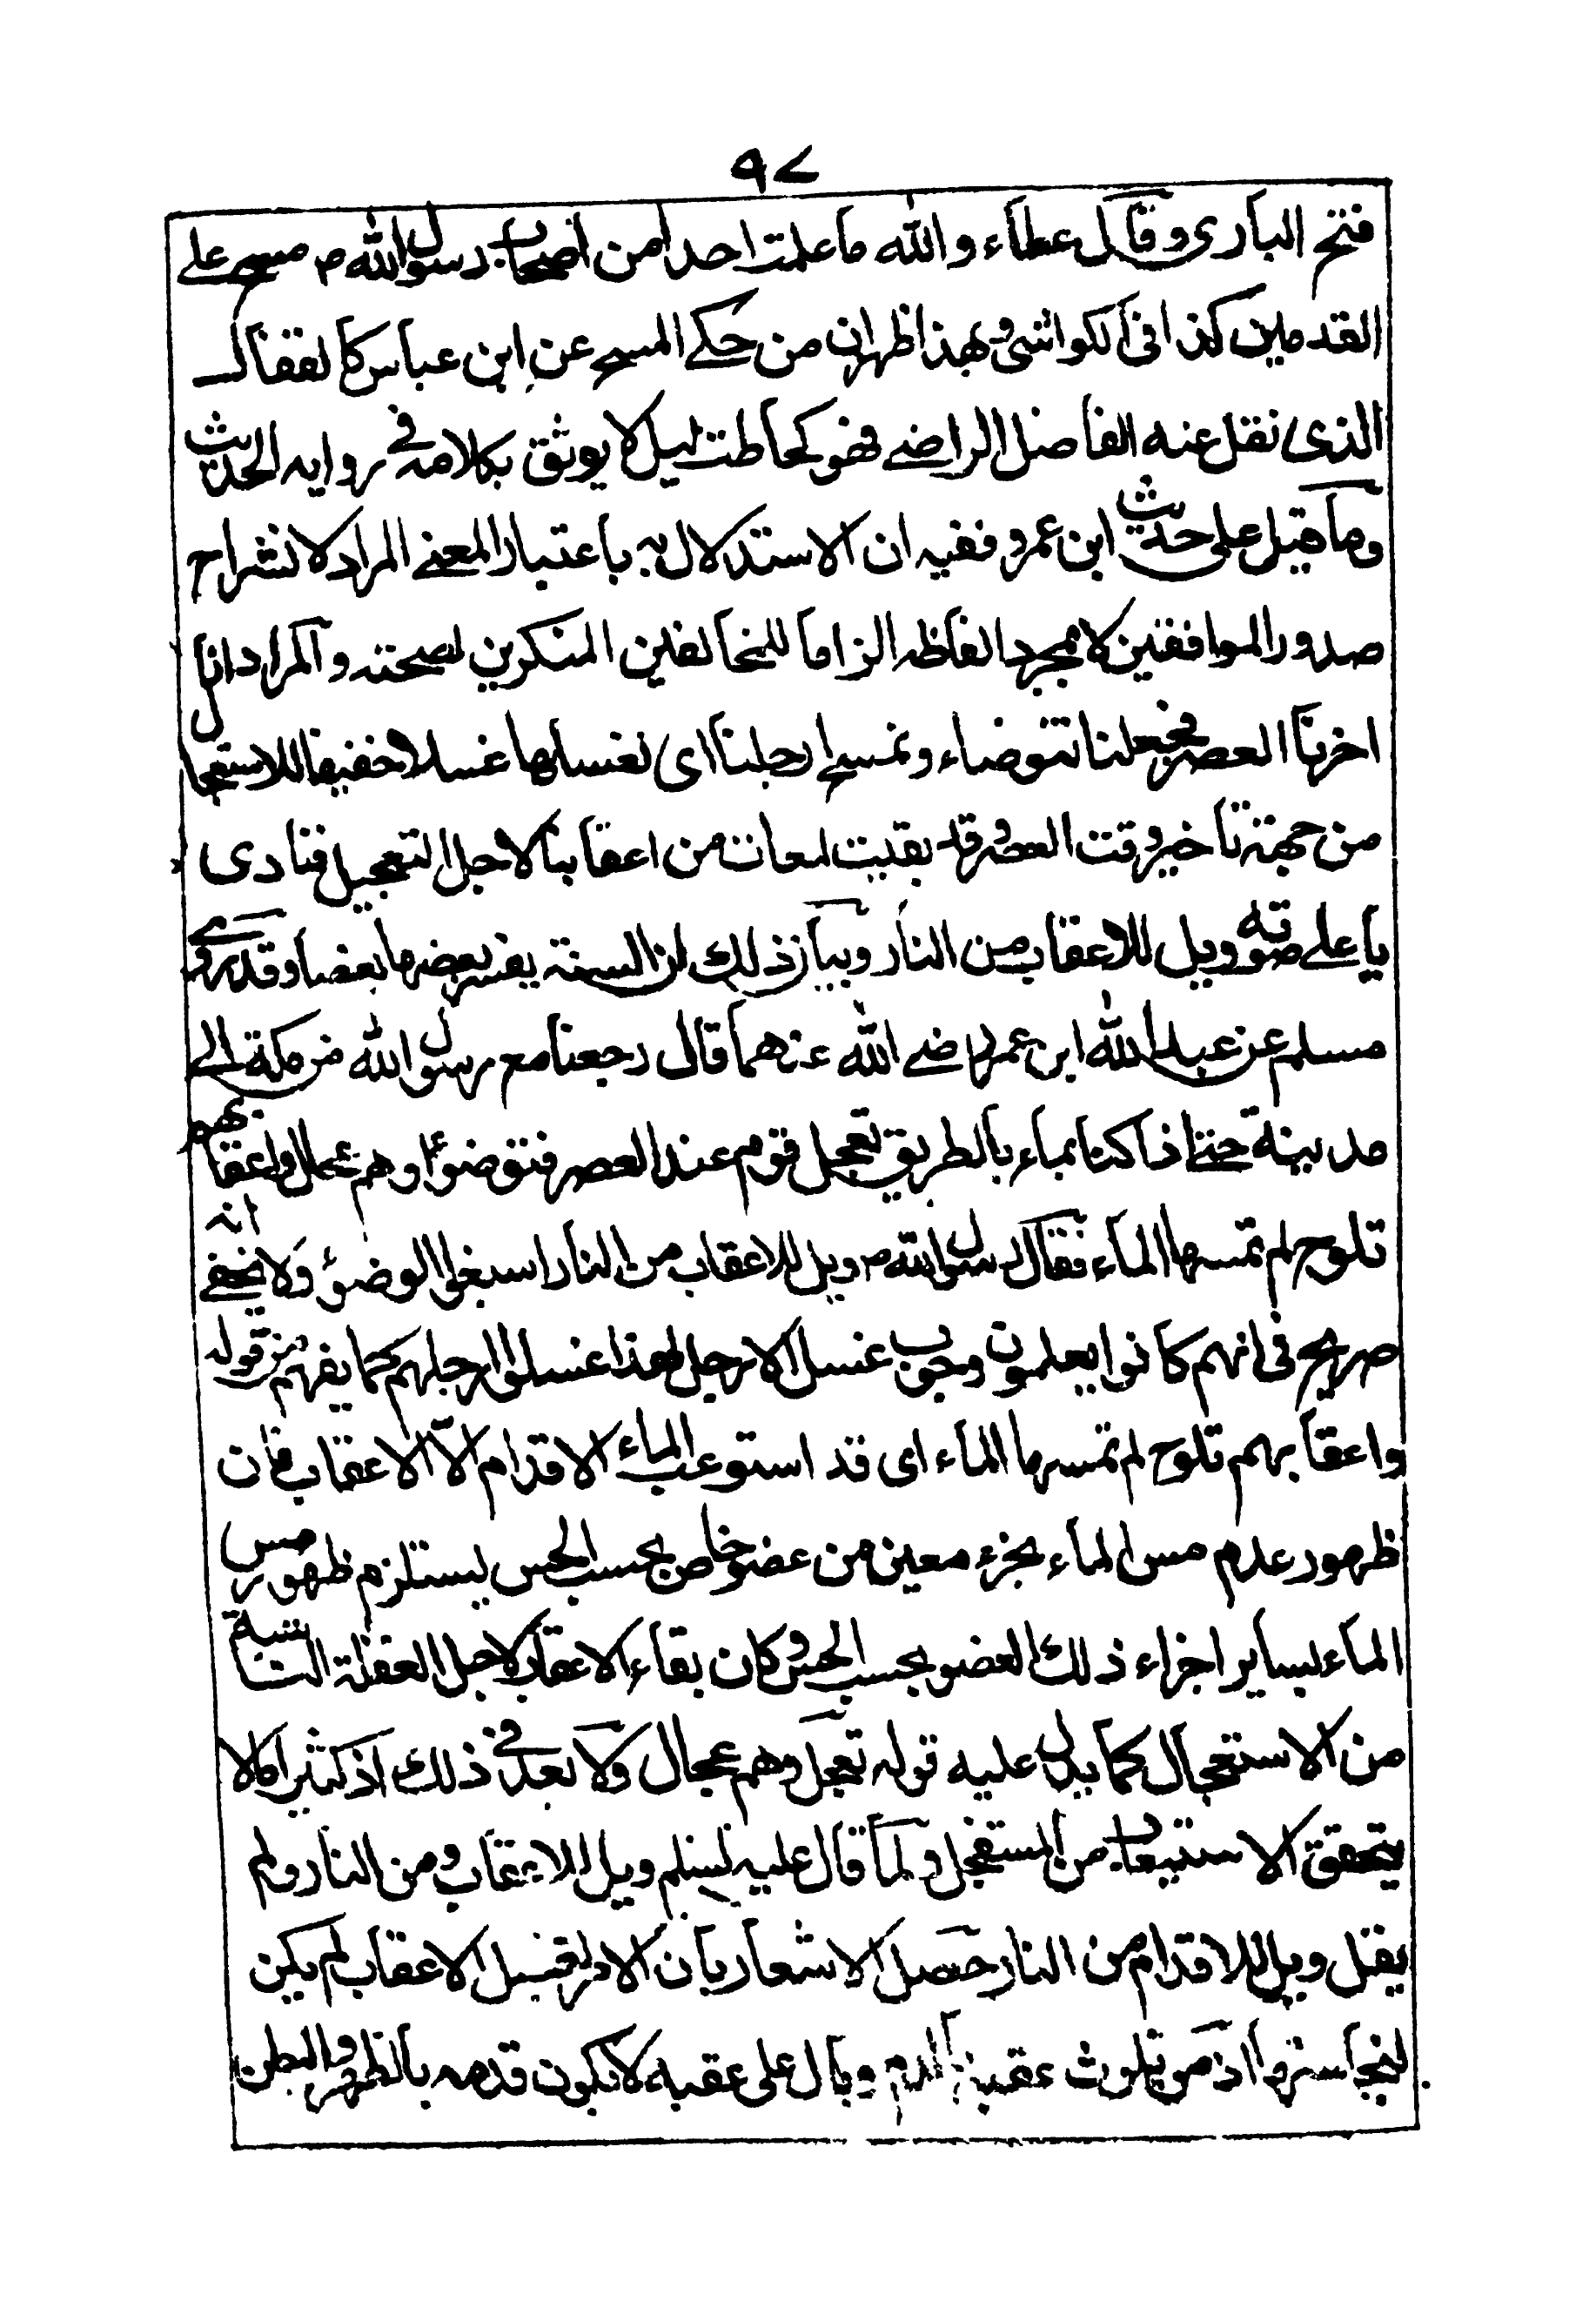 ٩٧
فتح الباري وقال عطاء والله ما علمت احدا من اصحاب رسول الله م مسح على
القدمين كذا في الكواشى وبهذا ظهر ان من حكے المسح عن ابن عباس كالقفال
الذي نقل عنه الفاضل الراضے فهو كحاطت ليل لا يوثق بكلامه في روايه الحديث
وما قيل على حديث ابن عمرو ففيه ان الاستدلال به باعتبار المعنے المراد لانشراح
صدور الموافقين لا مجرد الفاظه الزاما للمخالفين المنكرين لصحته والمراد انا
اخرنا العصر فجعلنا نتوضاء ونمسح ارجلنا اى نغسلها غسلا خفيفا للاستعجال
من جهة تاخير وقت العصر وقد بقيت لمعات من اعقابنا لاجل التعجيل فنادى
يا على صوته ويل للاعقاب من النار وبيان ذلك ان السنة يفسر بعضها بعضا وقد روے
مسلم عن عبد الله ابن عمر راضے الله عنهما قال رجعنا مع رسول الله من مكة الى
مدينة حتے اذا كنا بماء بالطريق تعجل قوم عند العصر فتوضؤا وهم عجال واعقابهم
تلوح لم تمسها الماء فقال رسول الله م ويل للاعقاب من النار اسبغوا الوضوء ولا يخفے انه
صريح في انهم كانوا يعلمون وجوب غسل الارجل لهذا غسلوا ارجلهم كما يفهم من قوله
واعقابهم تلوح لم تمسها الماء اى قد استوعب الماء الاقدام الّا الاعقاب فان
ظهور عدم مس الماء بجزء معين من عضو خاص بحسب الحس يستلزم ظهور مس
الماء بساير اجزاء ذلك العضو بحسب الحس وكان بقاء الاعقاب لاجل الغفلة الناشية
من الاستعجال كما يدل عليه قوله تعجل وهم عجال ولا بعد في ذلك اذ كثيرا ما لا
يتحقق الاستيعاب من المستعجل ولما قال عليه لسلم ويل للاعقاب من النار ولم
يقل ويل للاقدام من النار حصل الاشعار بان الامر بغسل الاعقاب لم يكن
لنجاستها اذ من تلوث عقبه بالدم وبال على عقبه لا يكون قدمه بالظهر والبطن